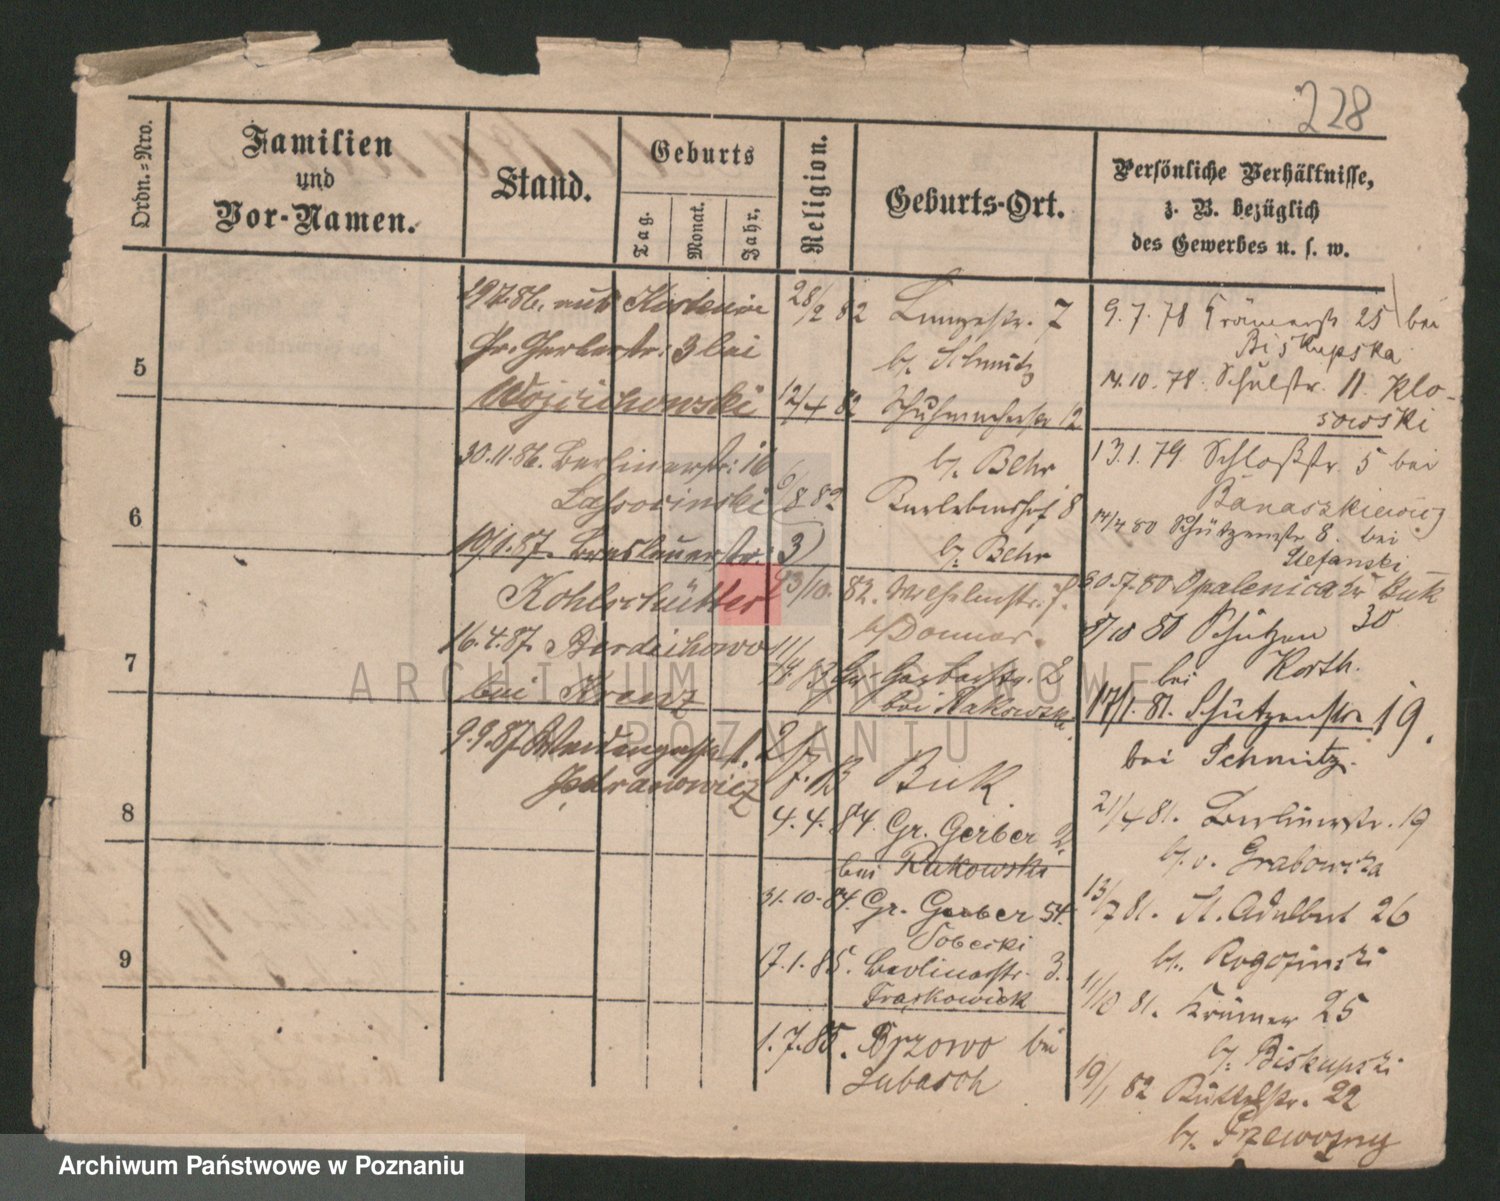 228
Ordn.=Nro.
Familien
und
Vor-Namen.
Stand.
Geburts
Tag.
Monat.
Jahr.
Religion.
Geburts-Ort.
Persönliche Verhältnisse,
z. B. bezüglich
des Gewerbes u. s. w.
5
6
7
8
9
19.7.86. aus
Gr. Gerberstr. 3 bei
Wojcichowski
30.11.86. Berlinerstr. 16
19/1.87. Breslauerstr. 3
Kohlschütter
16.4.87. Berdichowo
bei Krenz
9.9.87
28/2 82 Langestr. 7
b/. Schmitz
12/4 82 Schuhmacherstr 12
b/. Behr
9/8 82 8
b/. Behr
23/10. 82. Wilhelmstr. 7.
b/ Donner.
11/4. 83 Gr. Gerberstr. 2
bei Rakowski
2/7. 83 Buk
4.4.84. Gr. Gerber 2.
bei Rakowski
31.10.84. Gr. Gerber 54.
Tobecki
17.1.85. Berlinerstr. 3.
Fraskowiak
1.7.85. Brzowo bei
Lubasch
9.7.78 Krämerstr 25 bei
Biskupska
14.10.78. Schulstr. 11. Klo-
sowski
13.1.79 Schloßstr. 5 bei
Banaszkiewicz
14/4 80 Schützenstr 8. bei
Stefanski
30.7.80 Opalenica Kr Buk
8/10 80 Schützen 30
bei Korth.
17/1.81. Schützenstr 19.
bei Schmitz.
21/4 81. Berlinerstr. 19
b/. v. Grabowska
13/7 81. St. Adalbert 26
b/. Rogozinski
11/10 81. Krämer 25
b/. Biskupski
19/1 82 Büttelstr. 22
b/. Przewozny
ARCHIWUM PAŃSTWOWE
W POZNANIU
Archiwum Państwowe w Poznaniu